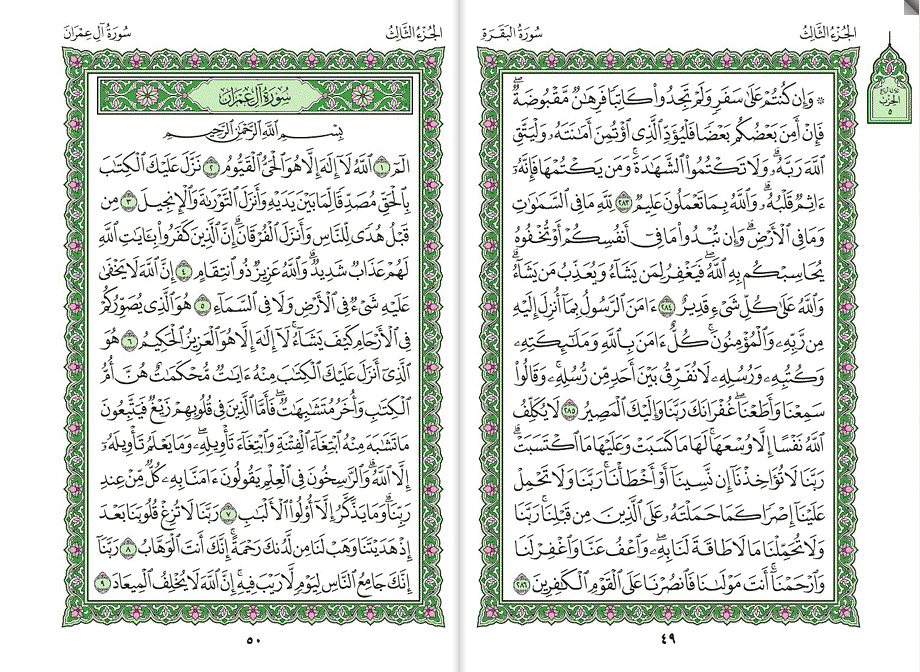 الجزء الثالث
سورة البقرة
۞ وَإِن كُنتُمْ عَلَىٰ سَفَرٍ وَلَمْ تَجِدُوا۟ كَاتِبًا فَرِهَـٰنٌ مَّقْبُوضَةٌ ۖ
فَإِنْ أَمِنَ بَعْضُكُم بَعْضًا فَلْيُؤَدِّ ٱلَّذِى ٱؤْتُمِنَ أَمَـٰنَتَهُۥ وَلْيَتَّقِ
ٱللَّهَ رَبَّهُۥ ۗ وَلَا تَكْتُمُوا۟ ٱلشَّهَـٰدَةَ ۚ وَمَن يَكْتُمْهَا فَإِنَّهُۥٓ
ءَاثِمٌ قَلْبُهُۥ ۗ وَٱللَّهُ بِمَا تَعْمَلُونَ عَلِيمٌ ٢٨٣ لِّلَّهِ مَا فِى ٱلسَّمَـٰوَٰتِ
وَمَا فِى ٱلْأَرْضِ ۗ وَإِن تُبْدُوا۟ مَا فِىٓ أَنفُسِكُمْ أَوْ تُخْفُوهُ
يُحَاسِبْكُم بِهِ ٱللَّهُ ۖ فَيَغْفِرُ لِمَن يَشَآءُ وَيُعَذِّبُ مَن يَشَآءُ ۗ
وَٱللَّهُ عَلَىٰ كُلِّ شَىْءٍ قَدِيرٌ ٢٨٤ ءَامَنَ ٱلرَّسُولُ بِمَآ أُنزِلَ إِلَيْهِ
مِن رَّبِّهِۦ وَٱلْمُؤْمِنُونَ ۚ كُلٌّ ءَامَنَ بِٱللَّهِ وَمَلَـٰٓئِكَتِهِۦ
وَكُتُبِهِۦ وَرُسُلِهِۦ لَا نُفَرِّقُ بَيْنَ أَحَدٍ مِّن رُّسُلِهِۦ ۚ وَقَالُوا۟
سَمِعْنَا وَأَطَعْنَا ۖ غُفْرَانَكَ رَبَّنَا وَإِلَيْكَ ٱلْمَصِيرُ ٢٨٥ لَا يُكَلِّفُ
ٱللَّهُ نَفْسًا إِلَّا وُسْعَهَا ۚ لَهَا مَا كَسَبَتْ وَعَلَيْهَا مَا ٱكْتَسَبَتْ ۗ
رَبَّنَا لَا تُؤَاخِذْنَآ إِن نَّسِينَآ أَوْ أَخْطَأْنَا ۚ رَبَّنَا وَلَا تَحْمِلْ
عَلَيْنَآ إِصْرًا كَمَا حَمَلْتَهُۥ عَلَى ٱلَّذِينَ مِن قَبْلِنَا ۚ رَبَّنَا
وَلَا تُحَمِّلْنَا مَا لَا طَاقَةَ لَنَا بِهِۦ ۖ وَٱعْفُ عَنَّا وَٱغْفِرْ لَنَا
وَٱرْحَمْنَآ ۚ أَنتَ مَوْلَىٰنَا فَٱنصُرْنَا عَلَى ٱلْقَوْمِ ٱلْكَـٰفِرِينَ ٢٨٦
٤٩
الحزب
٥
الجزء الثالث
سورة آل عمران
سورة آل عمران
بِسْمِ ٱللَّهِ ٱلرَّحْمَـٰنِ ٱلرَّحِيمِ
الٓمٓ ١ ٱللَّهُ لَآ إِلَـٰهَ إِلَّا هُوَ ٱلْحَىُّ ٱلْقَيُّومُ ٢ نَزَّلَ عَلَيْكَ ٱلْكِتَـٰبَ
بِٱلْحَقِّ مُصَدِّقًا لِّمَا بَيْنَ يَدَيْهِ وَأَنزَلَ ٱلتَّوْرَىٰةَ وَٱلْإِنجِيلَ ٣ مِن
قَبْلُ هُدًى لِّلنَّاسِ وَأَنزَلَ ٱلْفُرْقَانَ ۗ إِنَّ ٱلَّذِينَ كَفَرُوا۟ بِـَٔايَـٰتِ ٱللَّهِ
لَهُمْ عَذَابٌ شَدِيدٌ ۗ وَٱللَّهُ عَزِيزٌ ذُو ٱنتِقَامٍ ٤ إِنَّ ٱللَّهَ لَا يَخْفَىٰ
عَلَيْهِ شَىْءٌ فِى ٱلْأَرْضِ وَلَا فِى ٱلسَّمَآءِ ٥ هُوَ ٱلَّذِى يُصَوِّرُكُمْ
فِى ٱلْأَرْحَامِ كَيْفَ يَشَآءُ ۚ لَآ إِلَـٰهَ إِلَّا هُوَ ٱلْعَزِيزُ ٱلْحَكِيمُ ٦ هُوَ
ٱلَّذِىٓ أَنزَلَ عَلَيْكَ ٱلْكِتَـٰبَ مِنْهُ ءَايَـٰتٌ مُّحْكَمَـٰتٌ هُنَّ أُمُّ
ٱلْكِتَـٰبِ وَأُخَرُ مُتَشَـٰبِهَـٰتٌ ۖ فَأَمَّا ٱلَّذِينَ فِى قُلُوبِهِمْ زَيْغٌ فَيَتَّبِعُونَ
مَا تَشَـٰبَهَ مِنْهُ ٱبْتِغَآءَ ٱلْفِتْنَةِ وَٱبْتِغَآءَ تَأْوِيلِهِۦ ۗ وَمَا يَعْلَمُ تَأْوِيلَهُۥٓ
إِلَّا ٱللَّهُ ۗ وَٱلرَّٰسِخُونَ فِى ٱلْعِلْمِ يَقُولُونَ ءَامَنَّا بِهِۦ كُلٌّ مِّنْ عِندِ
رَبِّنَا ۗ وَمَا يَذَّكَّرُ إِلَّآ أُو۟لُوا۟ ٱلْأَلْبَـٰبِ ٧ رَبَّنَا لَا تُزِغْ قُلُوبَنَا بَعْدَ
إِذْ هَدَيْتَنَا وَهَبْ لَنَا مِن لَّدُنكَ رَحْمَةً ۚ إِنَّكَ أَنتَ ٱلْوَهَّابُ ٨ رَبَّنَآ
إِنَّكَ جَامِعُ ٱلنَّاسِ لِيَوْمٍ لَّا رَيْبَ فِيهِ ۚ إِنَّ ٱللَّهَ لَا يُخْلِفُ ٱلْمِيعَادَ ٩
٥٠